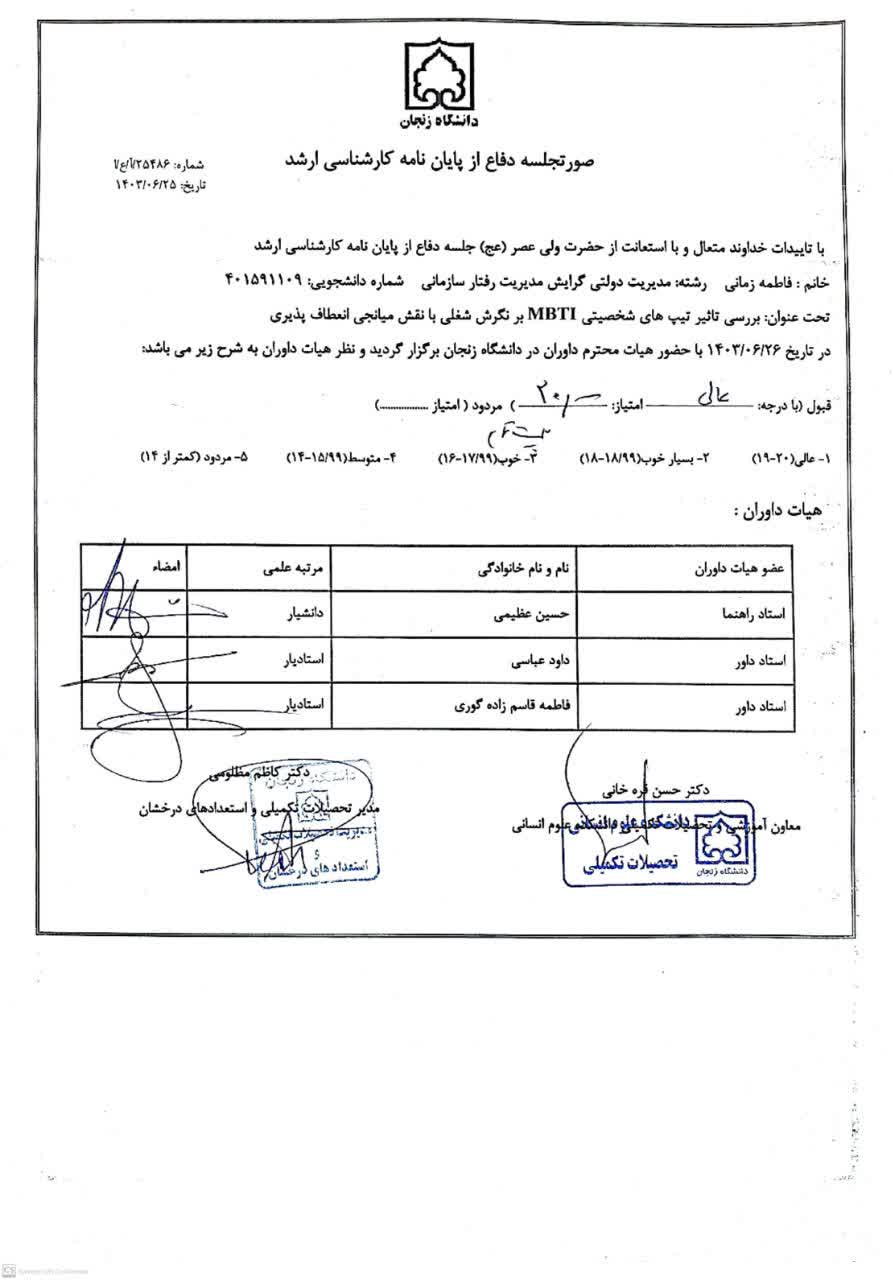 دانشگاه زنجان
صورتجلسه دفاع از پایان نامه کارشناسی ارشد
شماره: ۲۵۴۸۶/آ/ع/ا
تاریخ: ۱۴۰۳/۰۶/۲۵
با تاییدات خداوند متعال و با استعانت از حضرت ولی عصر (عج) جلسه دفاع از پایان نامه کارشناسی ارشد
خانم : فاطمه زمانی رشته: مدیریت دولتی گرایش مدیریت رفتار سازمانی شماره دانشجویی: ۴۰۱۵۹۱۱۰۹
تحت عنوان: بررسی تاثیر تیپ های شخصیتی MBTI بر نگرش شغلی با نقش میانجی انعطاف پذیری
در تاریخ ۱۴۰۳/۰۶/۲۶ با حضور هیات محترم داوران در دانشگاه زنجان برگزار گردید و نظر هیات داوران به شرح زیر می باشد:
قبول (با درجه: عالی امتیاز: ۲۰/۰۰ ) مردود ( امتیاز ................)
۱- عالی(۲۰-۱۹) ۲- بسیار خوب(۱۸/۹۹-۱۸) ۳- خوب(۱۷/۹۹-۱۶) ۴- متوسط(۱۵/۹۹-۱۴) ۵- مردود (کمتر از ۱۴)
هیات داوران :
عضو هیات داوران نام و نام خانوادگی مرتبه علمی امضاء
استاد راهنما حسین عظیمی دانشیار
استاد داور داود عباسی استادیار
استاد داور فاطمه قاسم زاده گوری استادیار
دکتر حسن قره خانی
معاون آموزشی و تحصیلات تکمیلی دانشکده علوم انسانی
دانشکده علوم انسانی
تحصیلات تکمیلی
دانشگاه زنجان
دکتر کاظم مظلومی
مدیر تحصیلات تکمیلی و استعدادهای درخشان
دانشگاه زنجان
مدیریت تحصیلات تکمیلی
و
استعداد های درخشان
CS